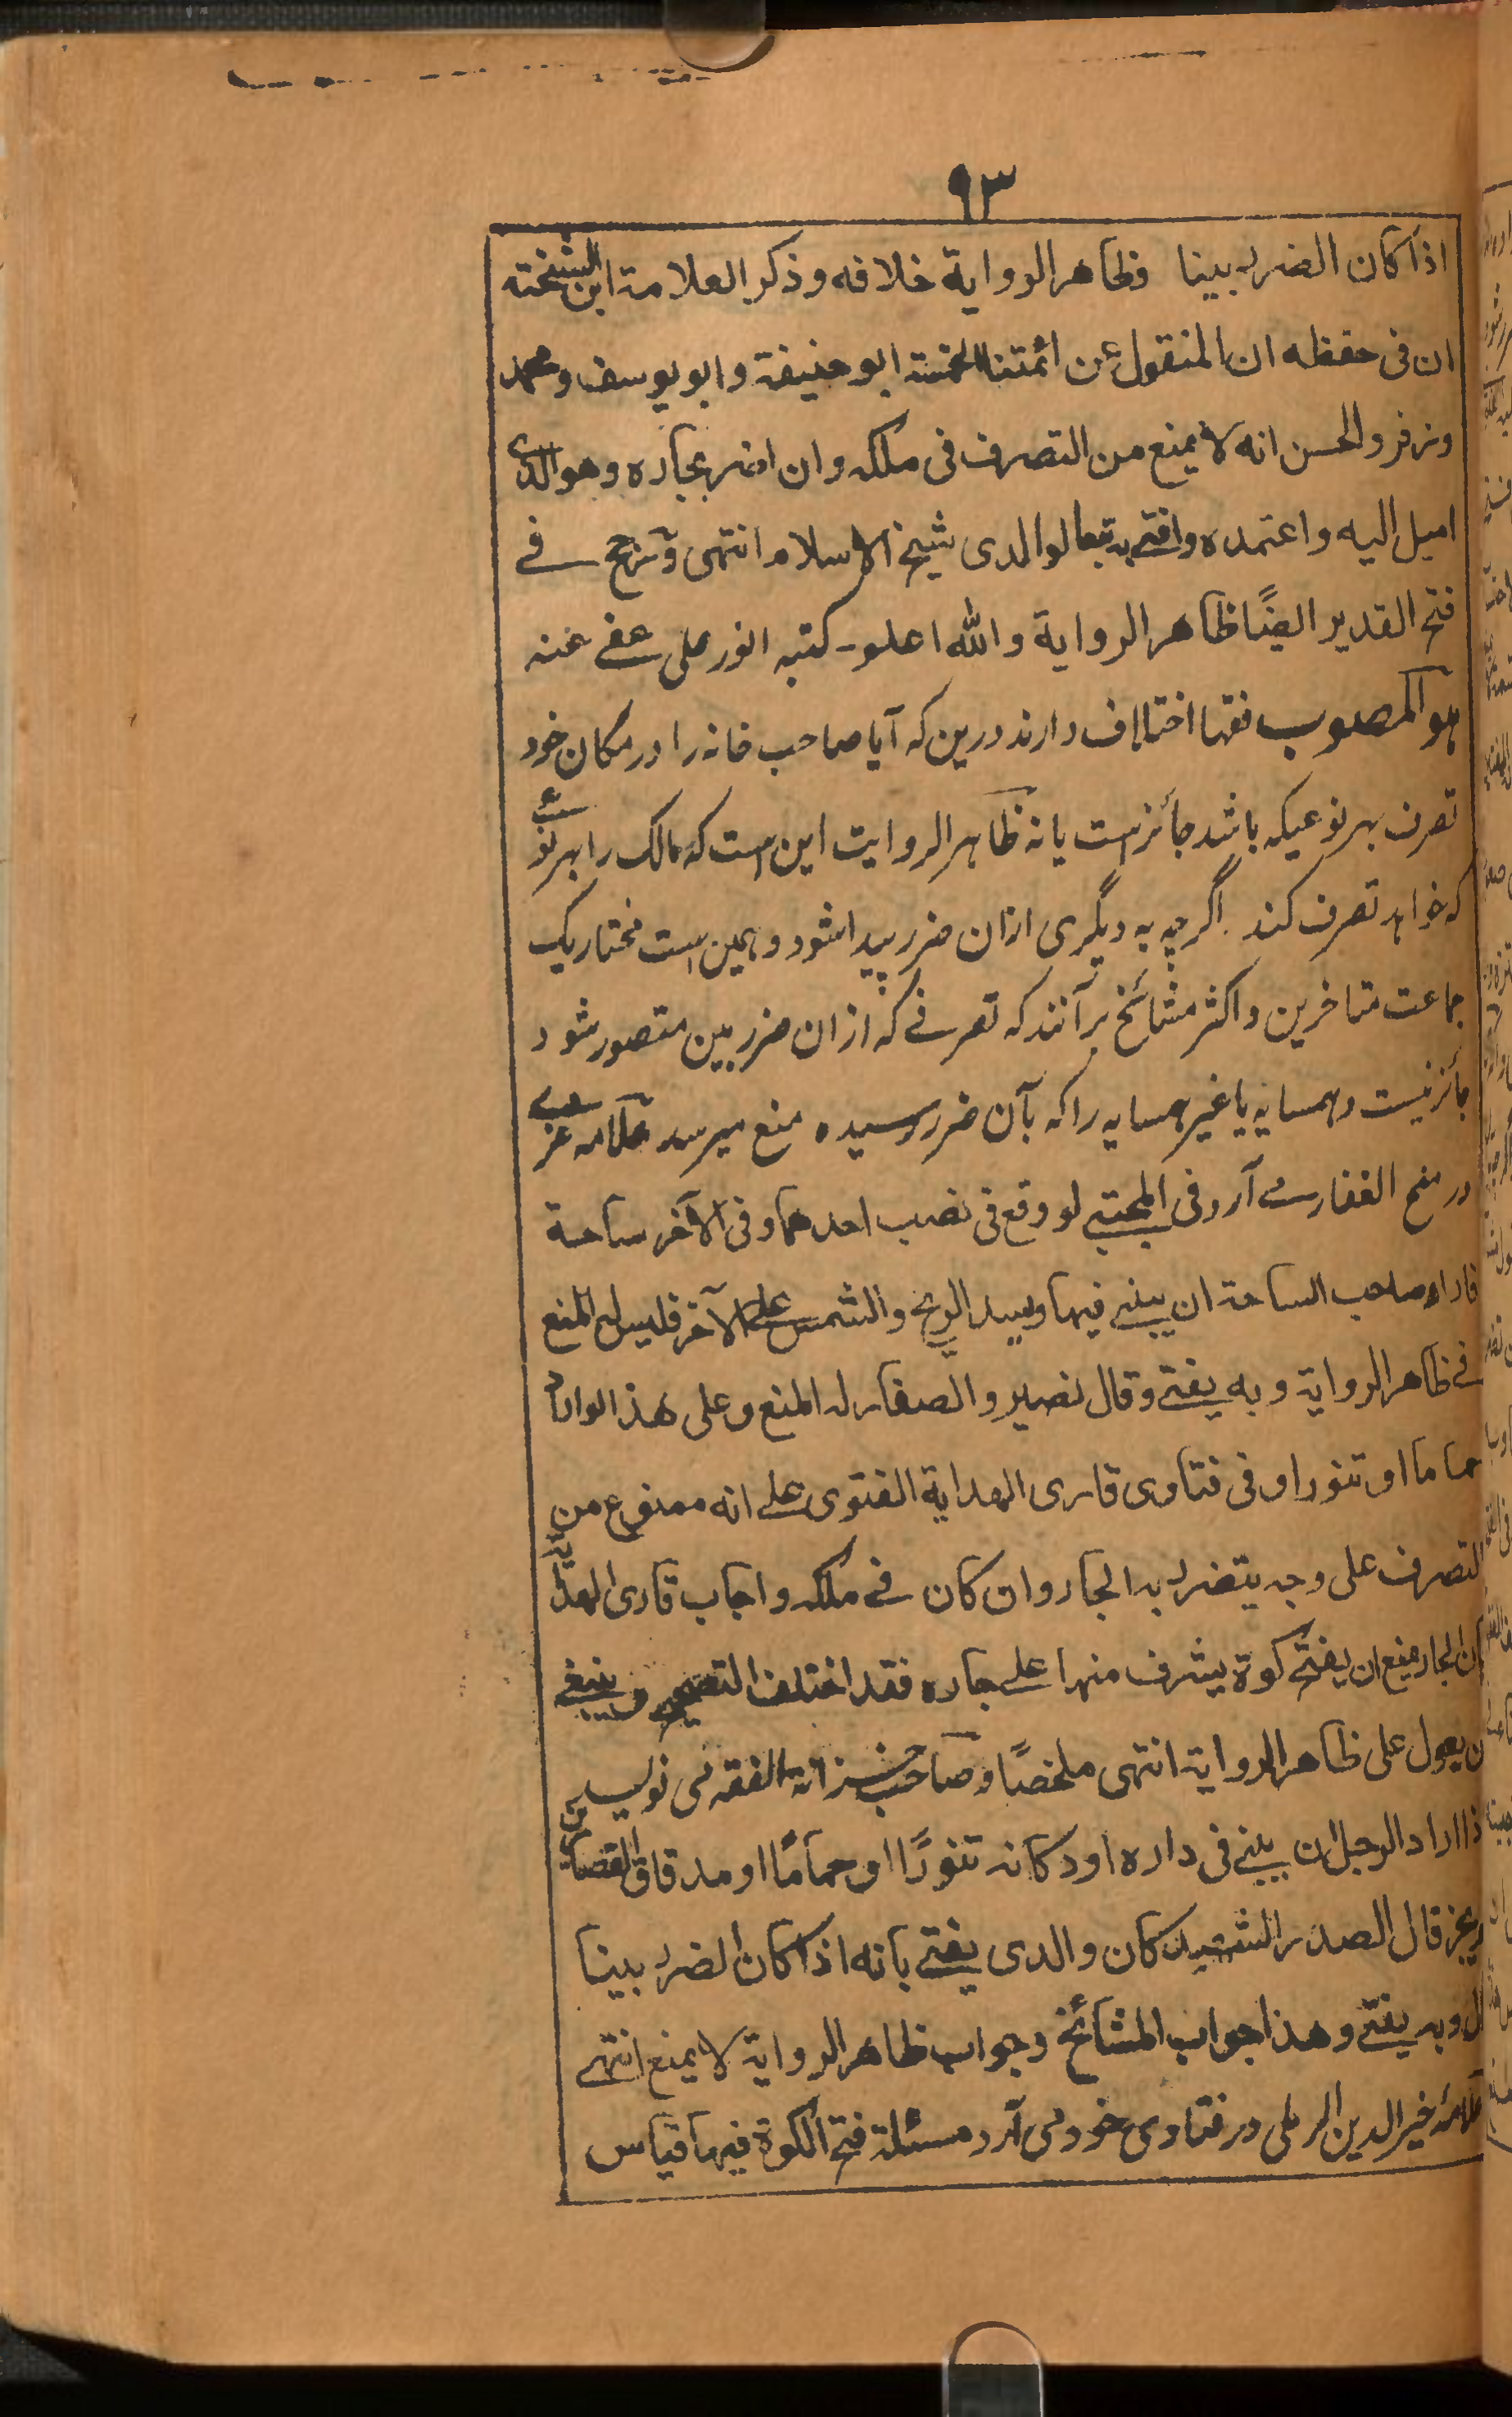 ٩٣
اذا كان الضرر بينا وظاهر الرواية خلافه وذكر العلامة ابن الشخته
ان فى حفظه ان المنقول عن ائمتنا الخمسة ابو حنيفة وابو يوسف ومحمد
وزفر والحسن انه لا يمنع من التصرف فى ملكه وان اضر بجاره وهو الذى
اميل اليه واعتمده وافتى به تبعا لوالدى شيخ الاسلام انتهى ورجح فے
فتح القدير ايضًا ظاهر الرواية والله اعلم - كتبه انور على عفى عنه
هو المصوب فقها اختلاف دارند درين كه آيا صاحب خانه را در مكان خود
تصرف بهر نوعيكه باشد جائز است يا نه ظاهر الروايت اين است كه مالك را بهر نوع
كه خواهد تصرف كند اگرچه به ديگرى ازان ضرر پيدا شود و همين است مختار يك
جماعت متاخرين و اكثر مشائخ بر آنند كه تصرفے كه از ان ضرر بين متصور شود
جائز نيست و همسايه يا غير همسايه را كه بآن ضرر رسيده منع ميرسد علامه غزى
در منح الغفار مے آرد فى المجتبى لو وقع فى نصيب احدهما وفى الآخر ساحة
فاراد صاحب الساحة ان يبنى فيها ويسد الريح والشمس على الآخر فليس له المنع
فے ظاهر الرواية وبه يفتى وقال نصير والصفار له المنع وعلى هذا لو اراد
حماما او تنورا وفى فتاوى قارى الهداية الفتوى على انه ممنوع من
التصرف على وجه يتضرر به الجار وان كان فے ملكه واجاب قارى الهداية
ان الجار منع ان يفتح كوة يشرف منها على جاره فقد اختلف التصحيح وينبغى
ان يعول على ظاهر الرواية انتهى ملخصًا و صاحب خزانة الفقه مى نويسد
اذا اراد الرجل ان يبنى فى داره او دكانه تنورًا او حمامًا او مدقاق القصارين
يجز قال الصدر الشهيد كان والدى يفتى بانه اذا كان الضرر بينا
وبه يفتى وهذا جواب المشائخ وجواب ظاهر الرواية لا يمنع انتهى
علامۂ خير الدين الرملى در فتاوى خود مى آرد مسئلة فتح الكوة فيها قياس